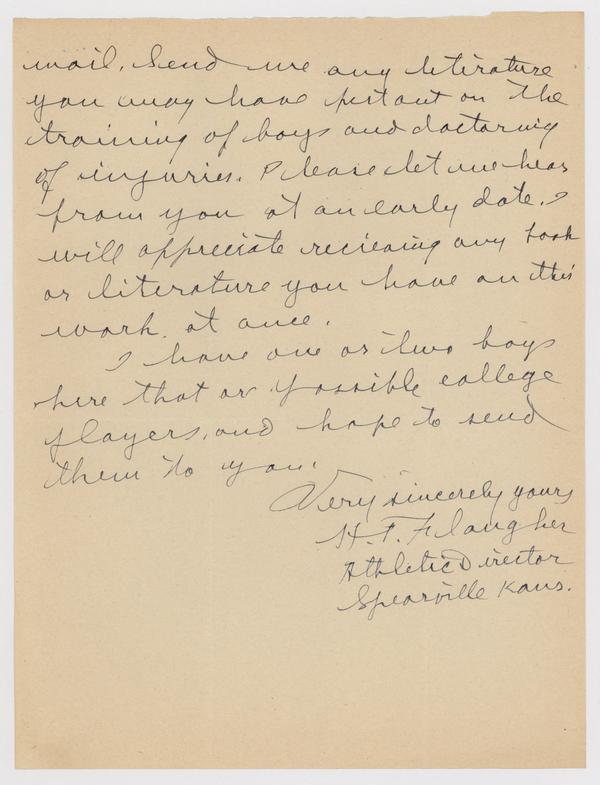 mail. Send me any literature
you may have put out on the
training of boys and doctoring
of injuries. Please let me hear
from you at an early date. I
will appreciate recieving any book
or literature you have on this
work at once.
I have one or two boys
here that ar possible college
players, and hope to send
them to you.
Very sincerely yours
H. F. Flaugher
Athletic Director
Spearville Kans.